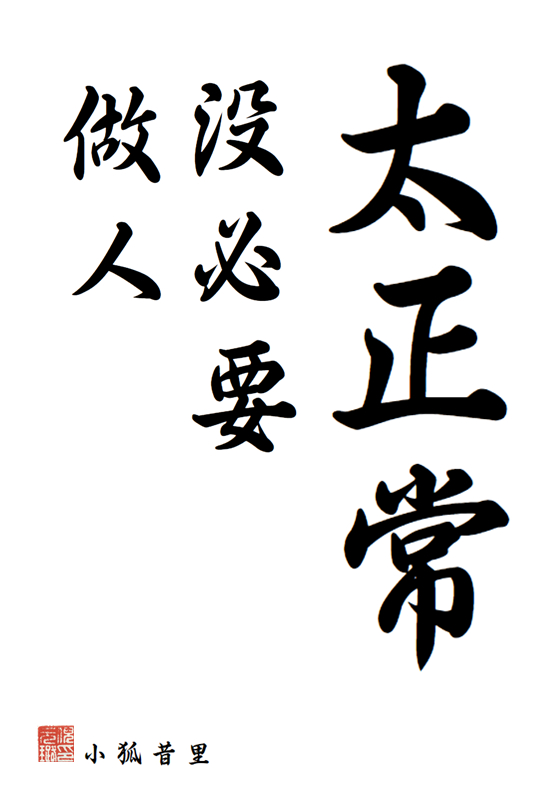 太正常
没必要
做人
小狐昔里